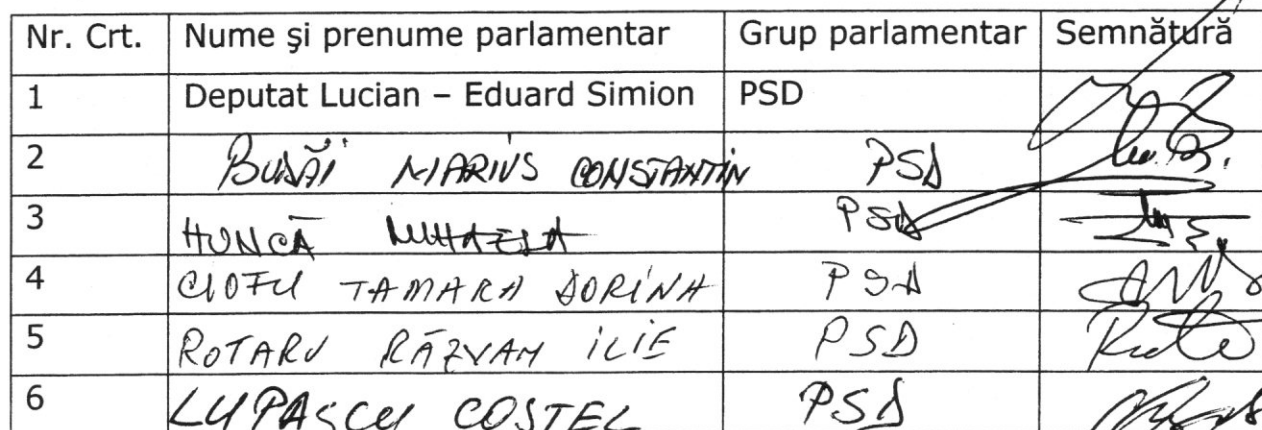 Nr. Crt. Nume şi prenume parlamentar Grup parlamentar Semnătură
1 Deputat Lucian – Eduard Simion PSD
2 BUDĂI MARIUS CONSTANTIN PSD
3 HUNCĂ MIHAELA PSD
4 CIOFU TAMARA DORINA PSD
5 ROTARU RĂZVAN ILIE PSD
6 LUPAȘCU COSTEL PSD